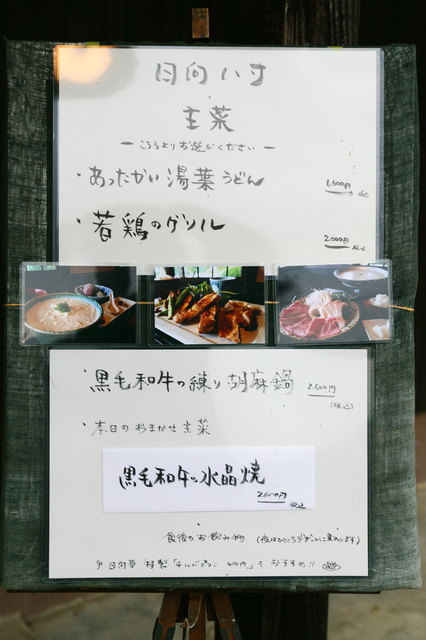 日向い寸
主菜
ー こちらよりお選びください ー
・あったかい湯葉うどん
1.600円 税込
・若鶏のグリル
2.000円 税込
・黒毛和牛の練り胡麻鍋 2.800円
(税込)
・本日のおまかせ主菜
黒毛和牛の水晶焼
2.600円 税込
食後のお飲み物
日向夢 特製「チルドプリン 400円」も おすすめ!!